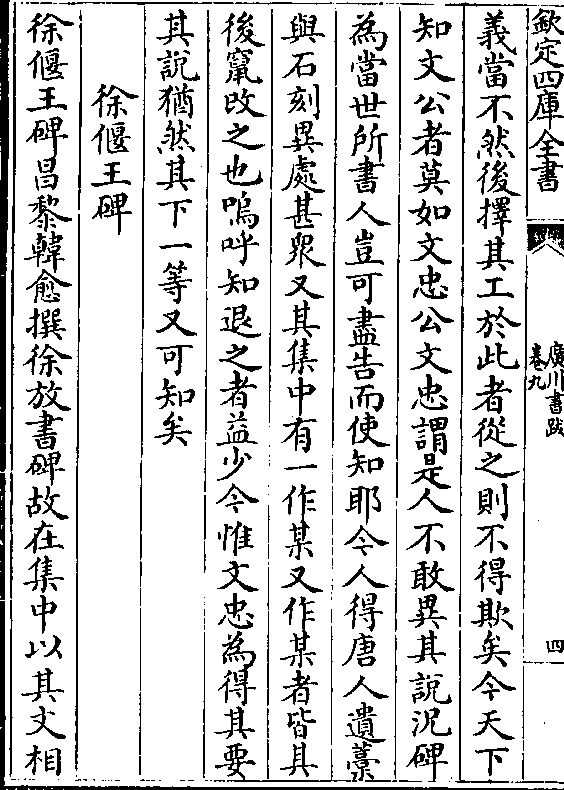 欽定四庫全書
廣川書跋
卷九
四
義當不然後擇其工於此者從之則不得欺矣今天下
知文公者莫如文忠公文忠謂是人不敢異其說況碑
為當世所書人豈可盡告而使知耶今人得唐人遺藁
與石刻異處甚衆又其集中有一作某又作某者皆其
後竄改之也嗚呼知退之者益少今惟文忠為得其要
其說猶然其下一等又可知矣
徐偃王碑
徐偃王碑昌黎韓愈撰徐放書碑故在集中以其文相